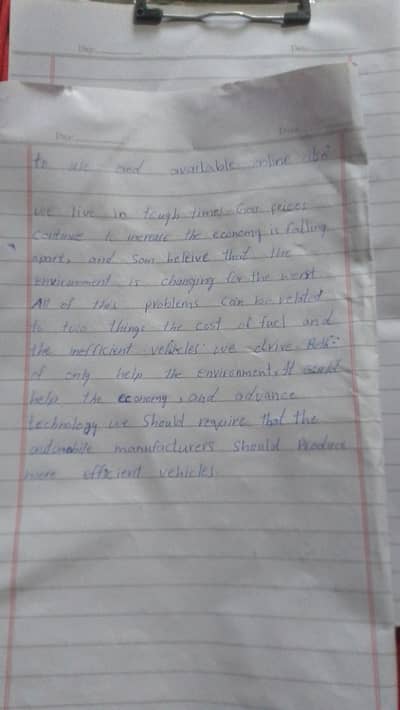 Date
Date
to use and available online also
we live in tough time. Gas prices
continue to increase the economy is falling
apart, and som beleive that the
environment is changing for the worst
All of this problems can be related
to two things the cost of fuel and
the inefficient vehicles we drive
if only help the environment, It
help the economy, and advance
technology we should require that the
automobile manufacturers should produce
more efficient vehicles.